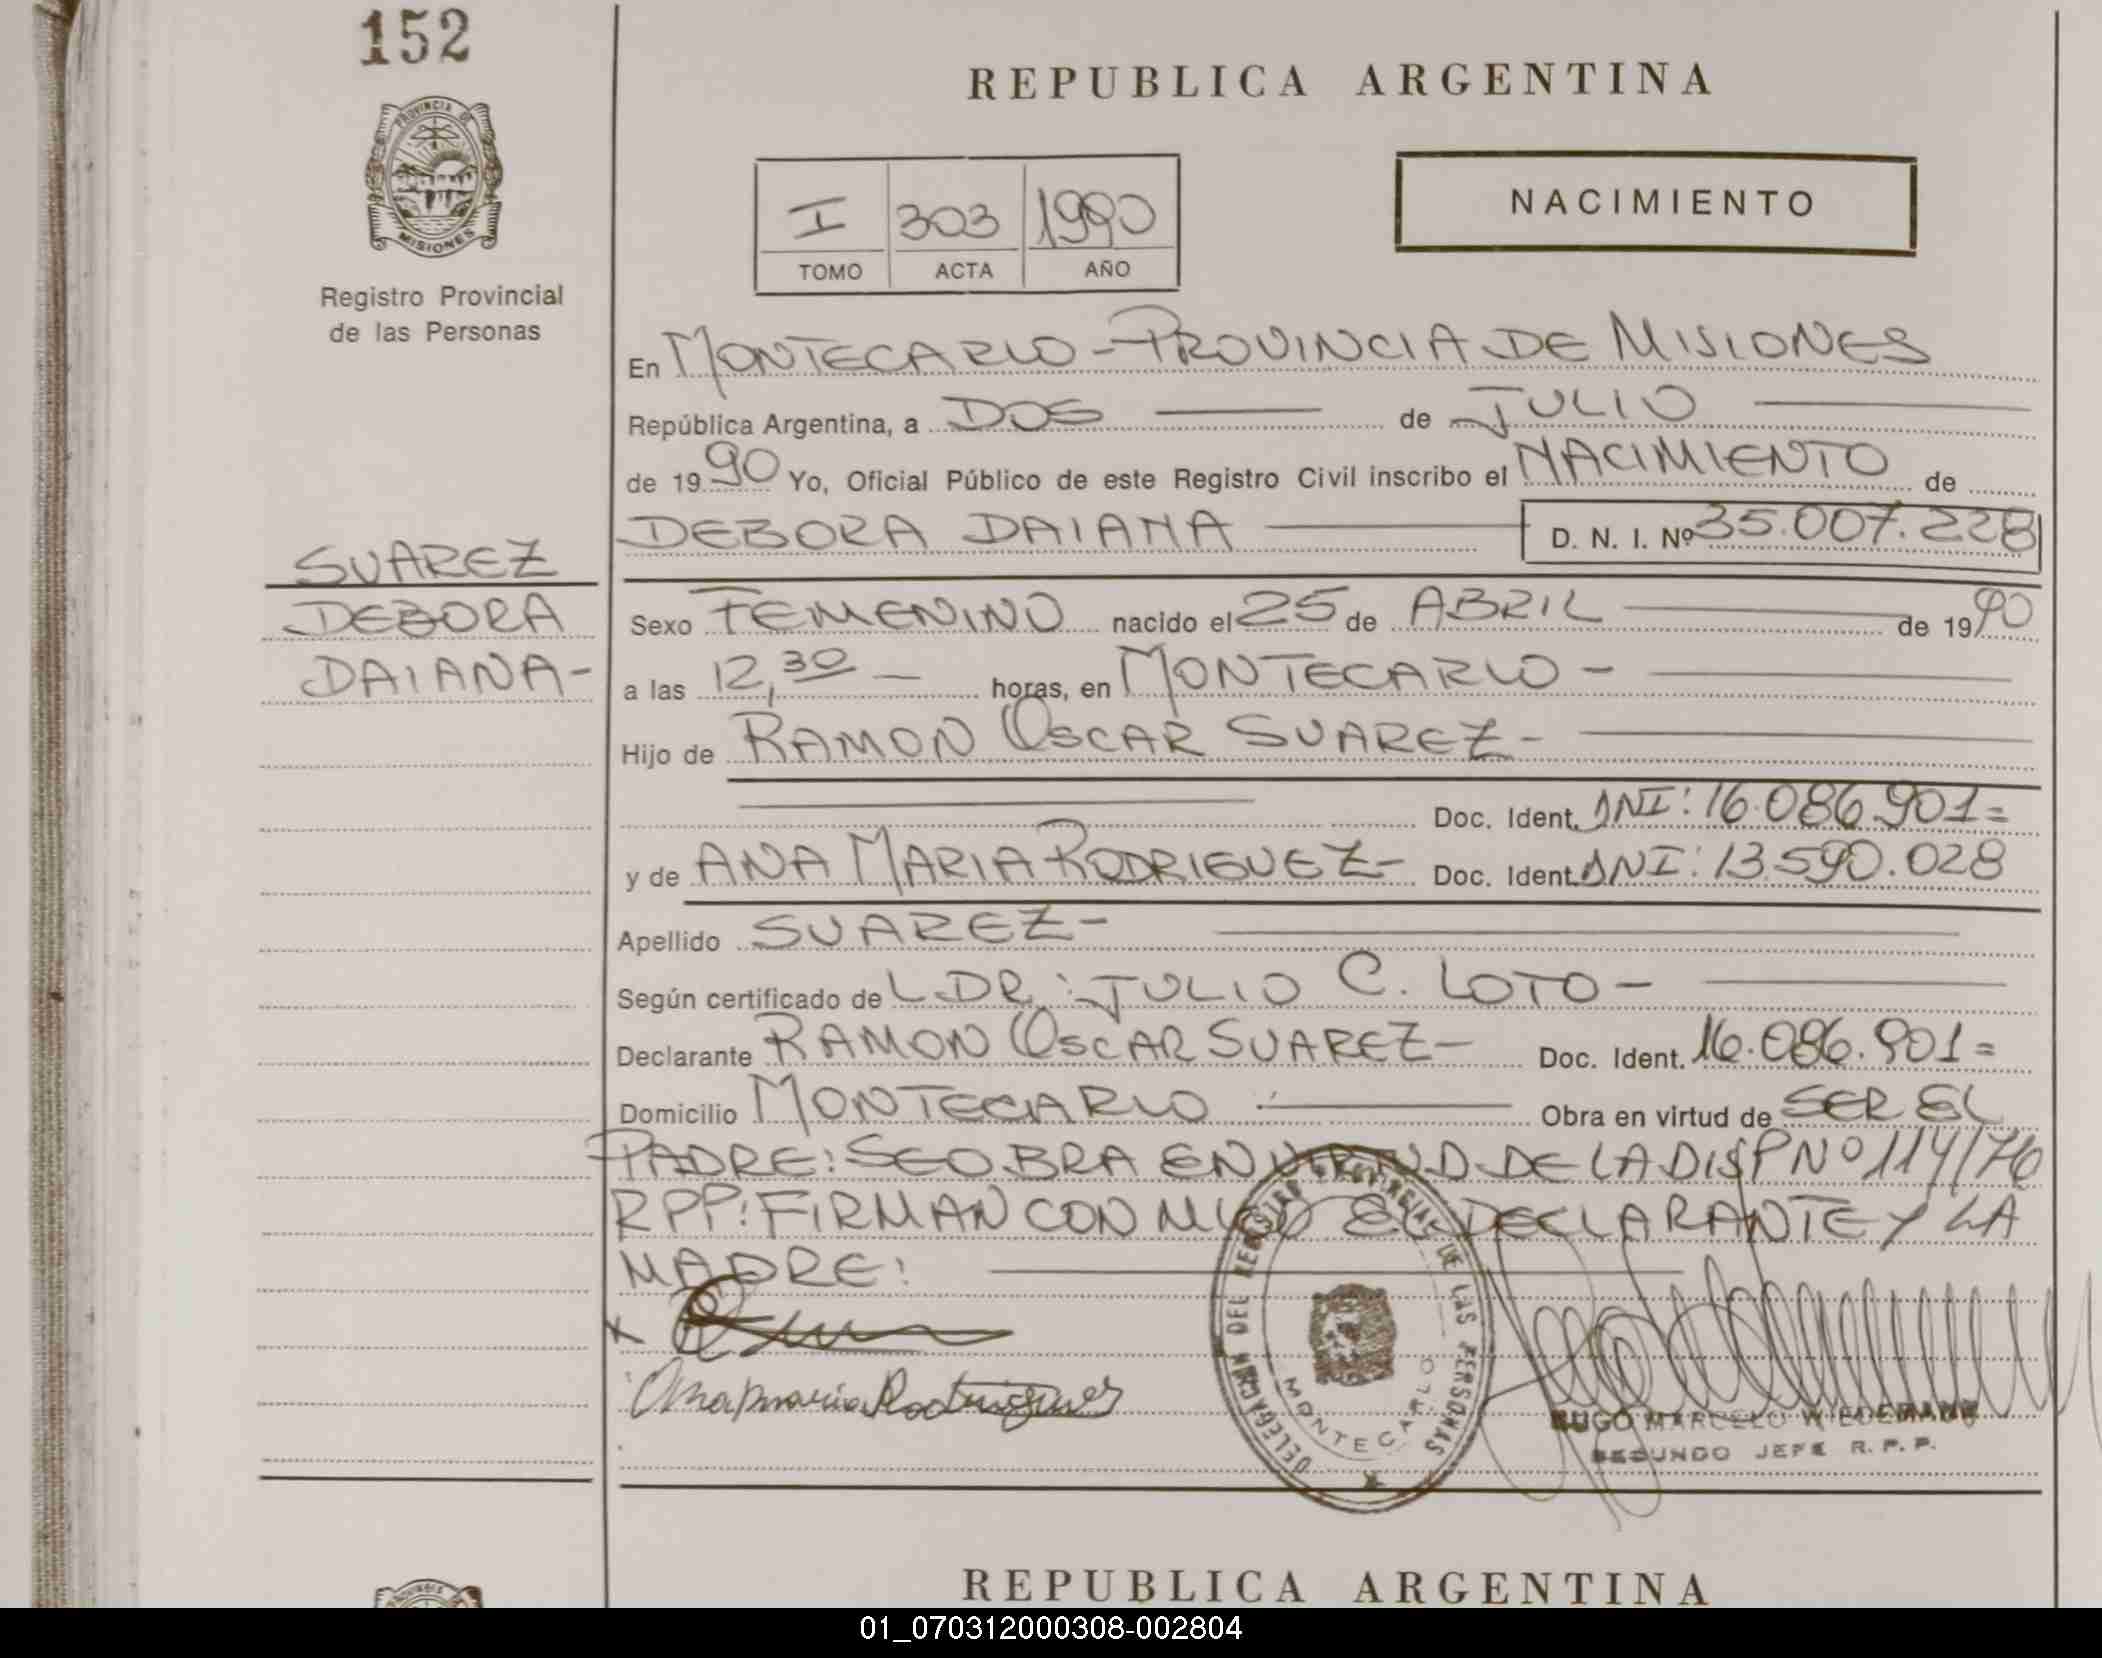 152
PROVINCIA DE
MISIONES
Registro Provincial
de las Personas
REPUBLICA ARGENTINA
I 303 1990
TOMO ACTA AÑO
NACIMIENTO
En MONTECARLO - PROVINCIA DE MISIONES
República Argentina, a DOS de JULIO
de 1990 Yo, Oficial Público de este Registro Civil inscribo el NACIMIENTO de
DEBORA DAIANA D. N. I. Nº 35.007.228
SUAREZ
DEBORA
DAIANA-
Sexo FEMENINO nacido el 25 de ABRIL de 1990
a las 12,30 - horas, en MONTECARLO -
Hijo de RAMON OSCAR SUAREZ-
Doc. Ident. DNI: 16.086.901=
y de ANA MARIA RODRIGUEZ- Doc. Ident. DNI: 13.590.028
Apellido SUAREZ-
Según certificado de L.DR: JULIO C. LOTO-
Declarante RAMON OSCAR SUAREZ- Doc. Ident. 16.086.901=
Domicilio MONTECARLO Obra en virtud de SER EL
PADRE: SE OBRA EN VIRTUD DE LA DISP Nº 114/76
RPP: FIRMAN CON MIGO EL DECLARANTE Y LA
MADRE:
Ana maria Rodriguez
DELEGACION DEL REGISTRO PROVINCIAL DE LAS PERSONAS
MONTECARLO
HUGO MARCELO WIEDEMANN
SEGUNDO JEFE R. P. P.
REPUBLICA ARGENTINA
01_070312000308-002804